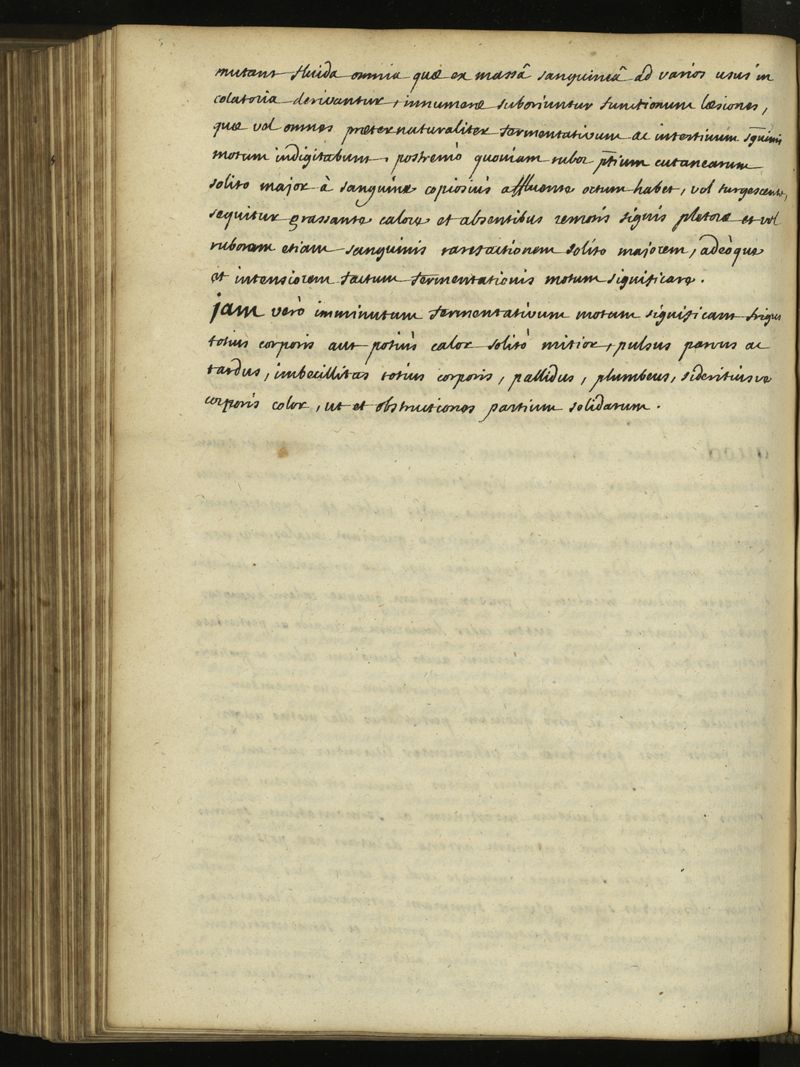 mutant fluida omnia quæ ex massâ sanguineâ ad varios usus in
colatoria derivantur, innumeræ suboriuntur functionum læsiones,
quæ vel omnes præternaturaliter fermentativum ac intestinum sguinis
motum indigitabunt, postremò quoniam rubor ptium cutanearum
solito major à sanguine copiosiùs affluente ortum habet, vel turgescente,
sequitur grassante calore et absentibus remoris signis pletoræ et vel
ruborem etiam sanguinis rarefactionem solito majorem, adeòque
et intensiorem factum fermentationis motum significare.
jam verò imminutum fermentativum motum significant frigus
totius corporis aut potiùs calor solitò mitior, pulsus parvus ac
tardus, imbecillitas totius corporis, pallidus, plumbeus, sideritiusve
corporis color, ut et obstructiones partium solidarum.